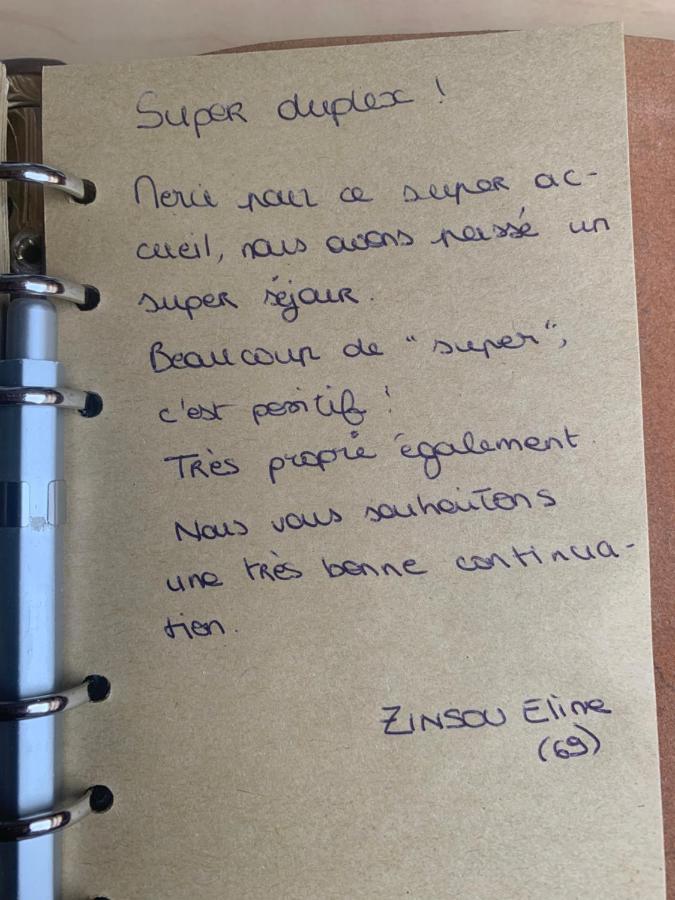 Super duplex !
Merci pour ce super ac-
cueil, nous avons passé un
super séjour.
Beaucoup de "super",
c'est positif !
Très propre également.
Nous vous souhaitons
une très bonne continua-
tion.
ZINSOU Eline
(69)